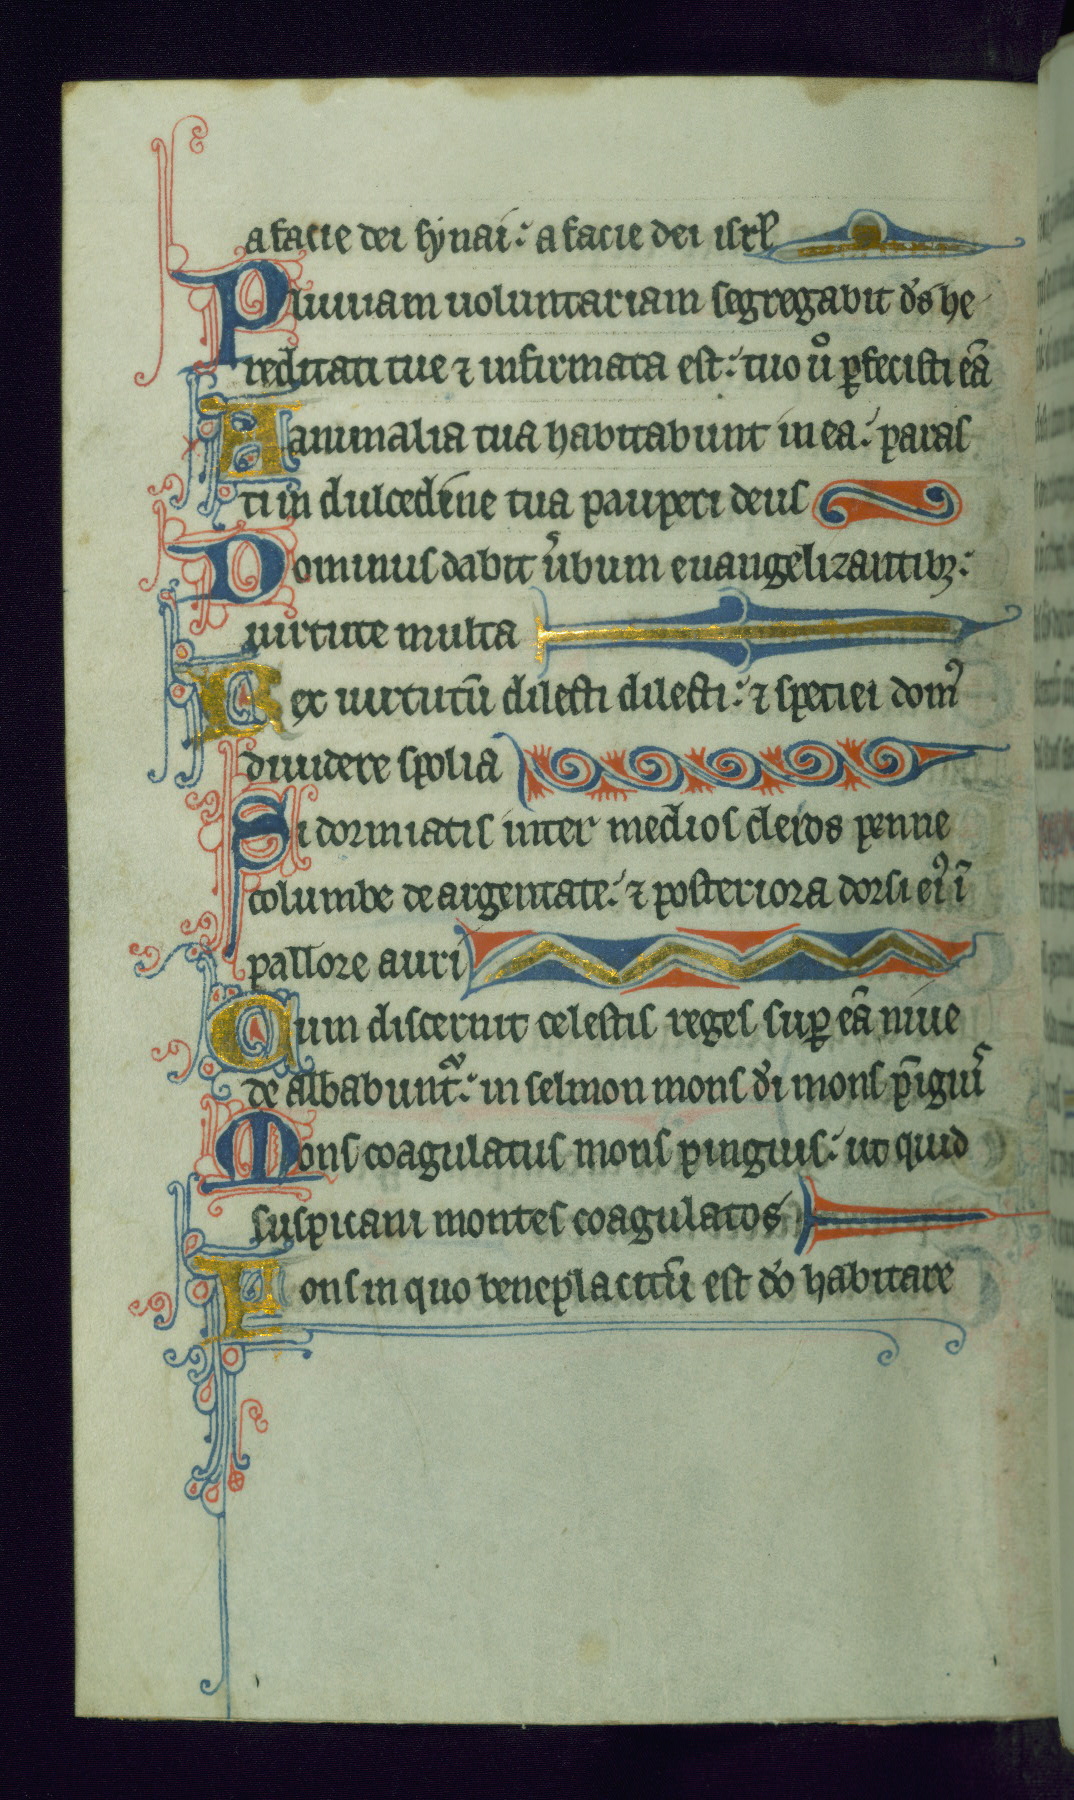 a facie dei synai: a facie dei isrl
Pluuiam uoluntariam segregabit ds he
reditati tue ⁊ infirmata est: tuo ů ꝑfecisti eā
Aanimalia tua habitabunt in ea: paras
ti in dulcedine tua pauperi deus
Dominus dabit ũbum euangelizantibꝫ:
uirtute multa
Rex uirtutū dilecti dilecti: ⁊ speciei domꝰ
diuidere spolia
Si dormiatis inter medios cleros penne
columbe de argentate: ⁊ posteriora dorsi eiꝰ ī
pallore auri
Cum discernit celestis reges suꝑ eā niue
de albabuntᷓ: in selmon mons di mons pīguis
Mons coagulatus mons pinguis: ut quid
suspicani montes coagulatos
Mons in quo beneplacitū est do habitare